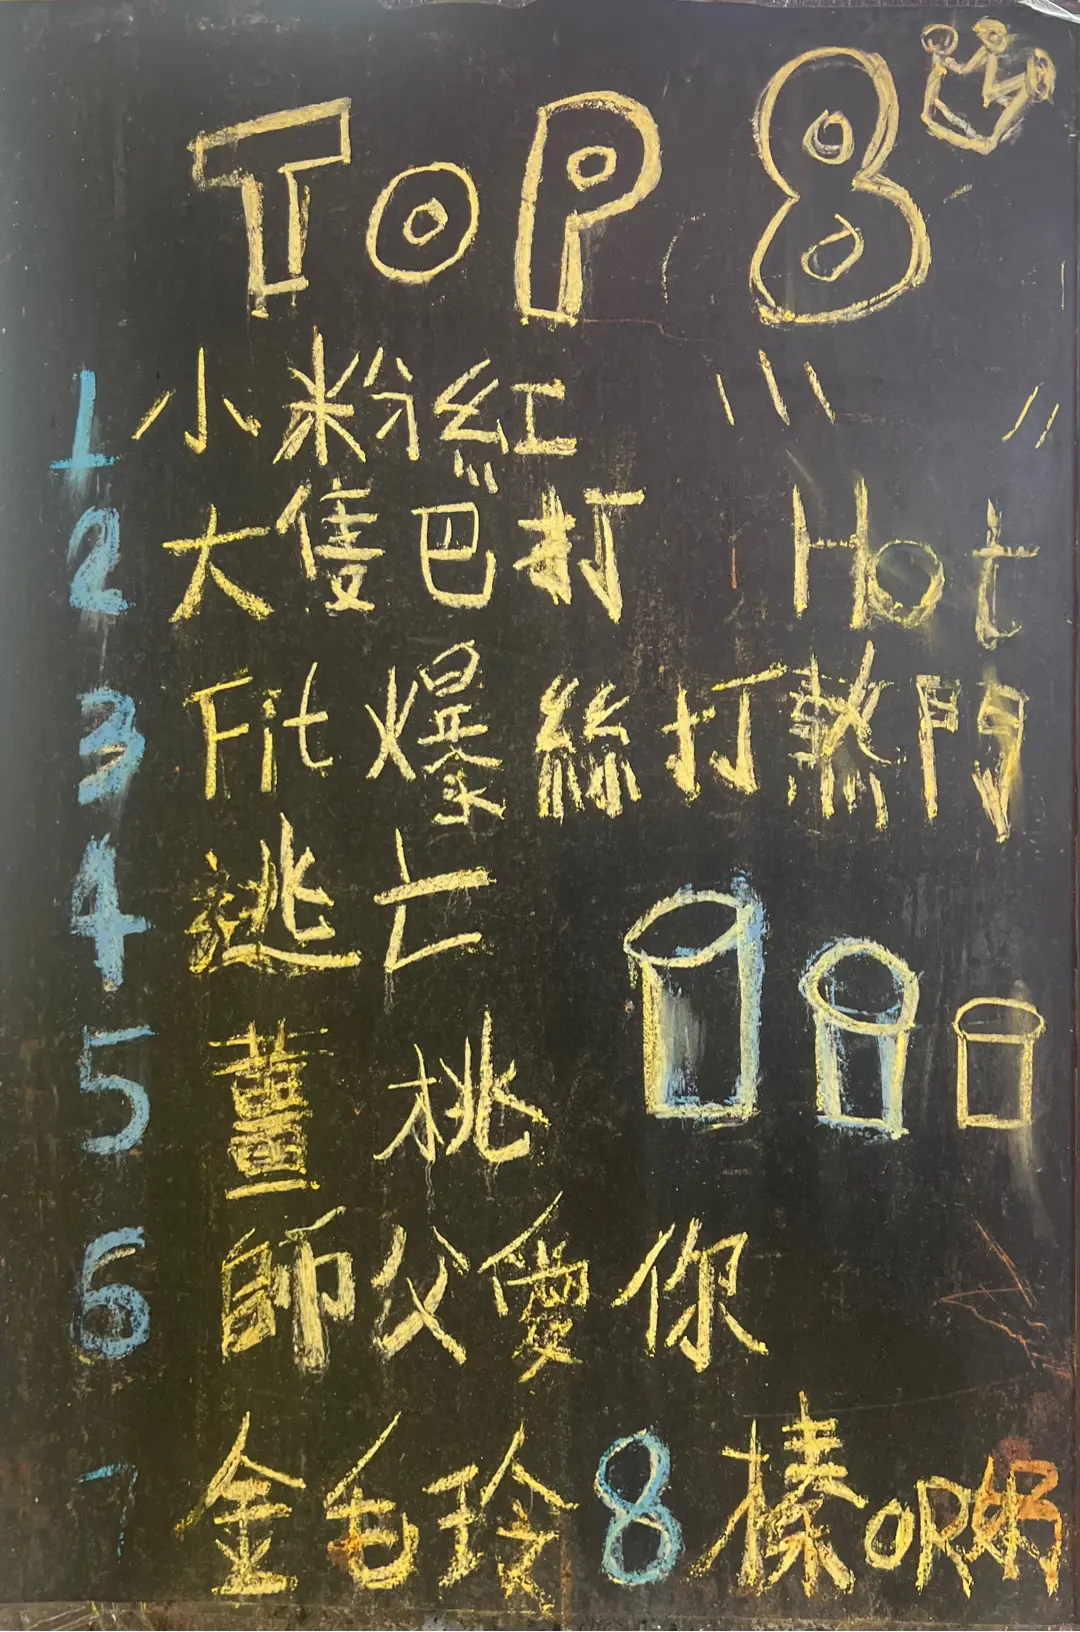 TOP 8
1 小粉紅
2 大隻巴打 Hot
3 Fit爆絲打 熱門
4 逃亡
5 薑桃
6 師父愛你
7 金毛玲 8 榛OR好